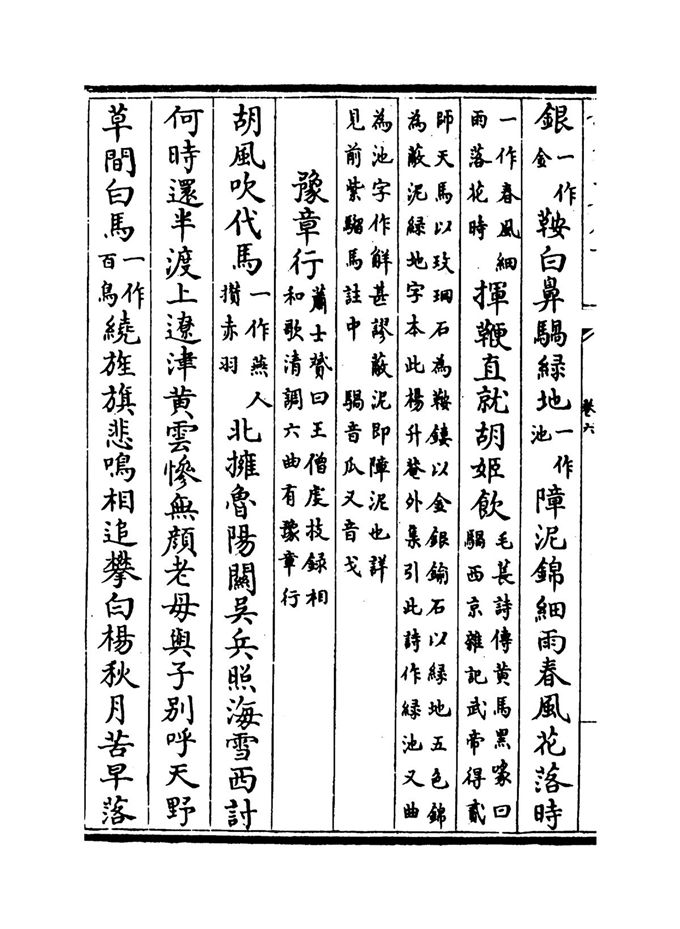 銀一作金鞍白鼻騧緑地一作池障泥錦細雨春風花落時
一作春風細雨落花時揮鞭直就胡姬飲毛萇詩傳黄馬黑喙曰騧西京雜記武帝得貳
師天馬以玫瑰石為鞍鏤以金銀鍮石以緑地五色錦
為蔽泥緑地字本此楊升菴外集引此詩作緑池又曲
為池字作解甚謬蔽泥即障泥也詳
見前紫騮馬註中 騧音瓜又音戈
豫章行蕭士贇曰王僧虔技録相和歌清調六曲有豫章行
胡風吹代馬一作燕人攢赤羽北擁魯陽關吳兵照海雪西討
何時還半渡上遼津黄雲慘無顔老母與子别呼天野
草間白馬一作百鳥繞旌旗悲鳴相追攀白楊秋月苦早落
卷六